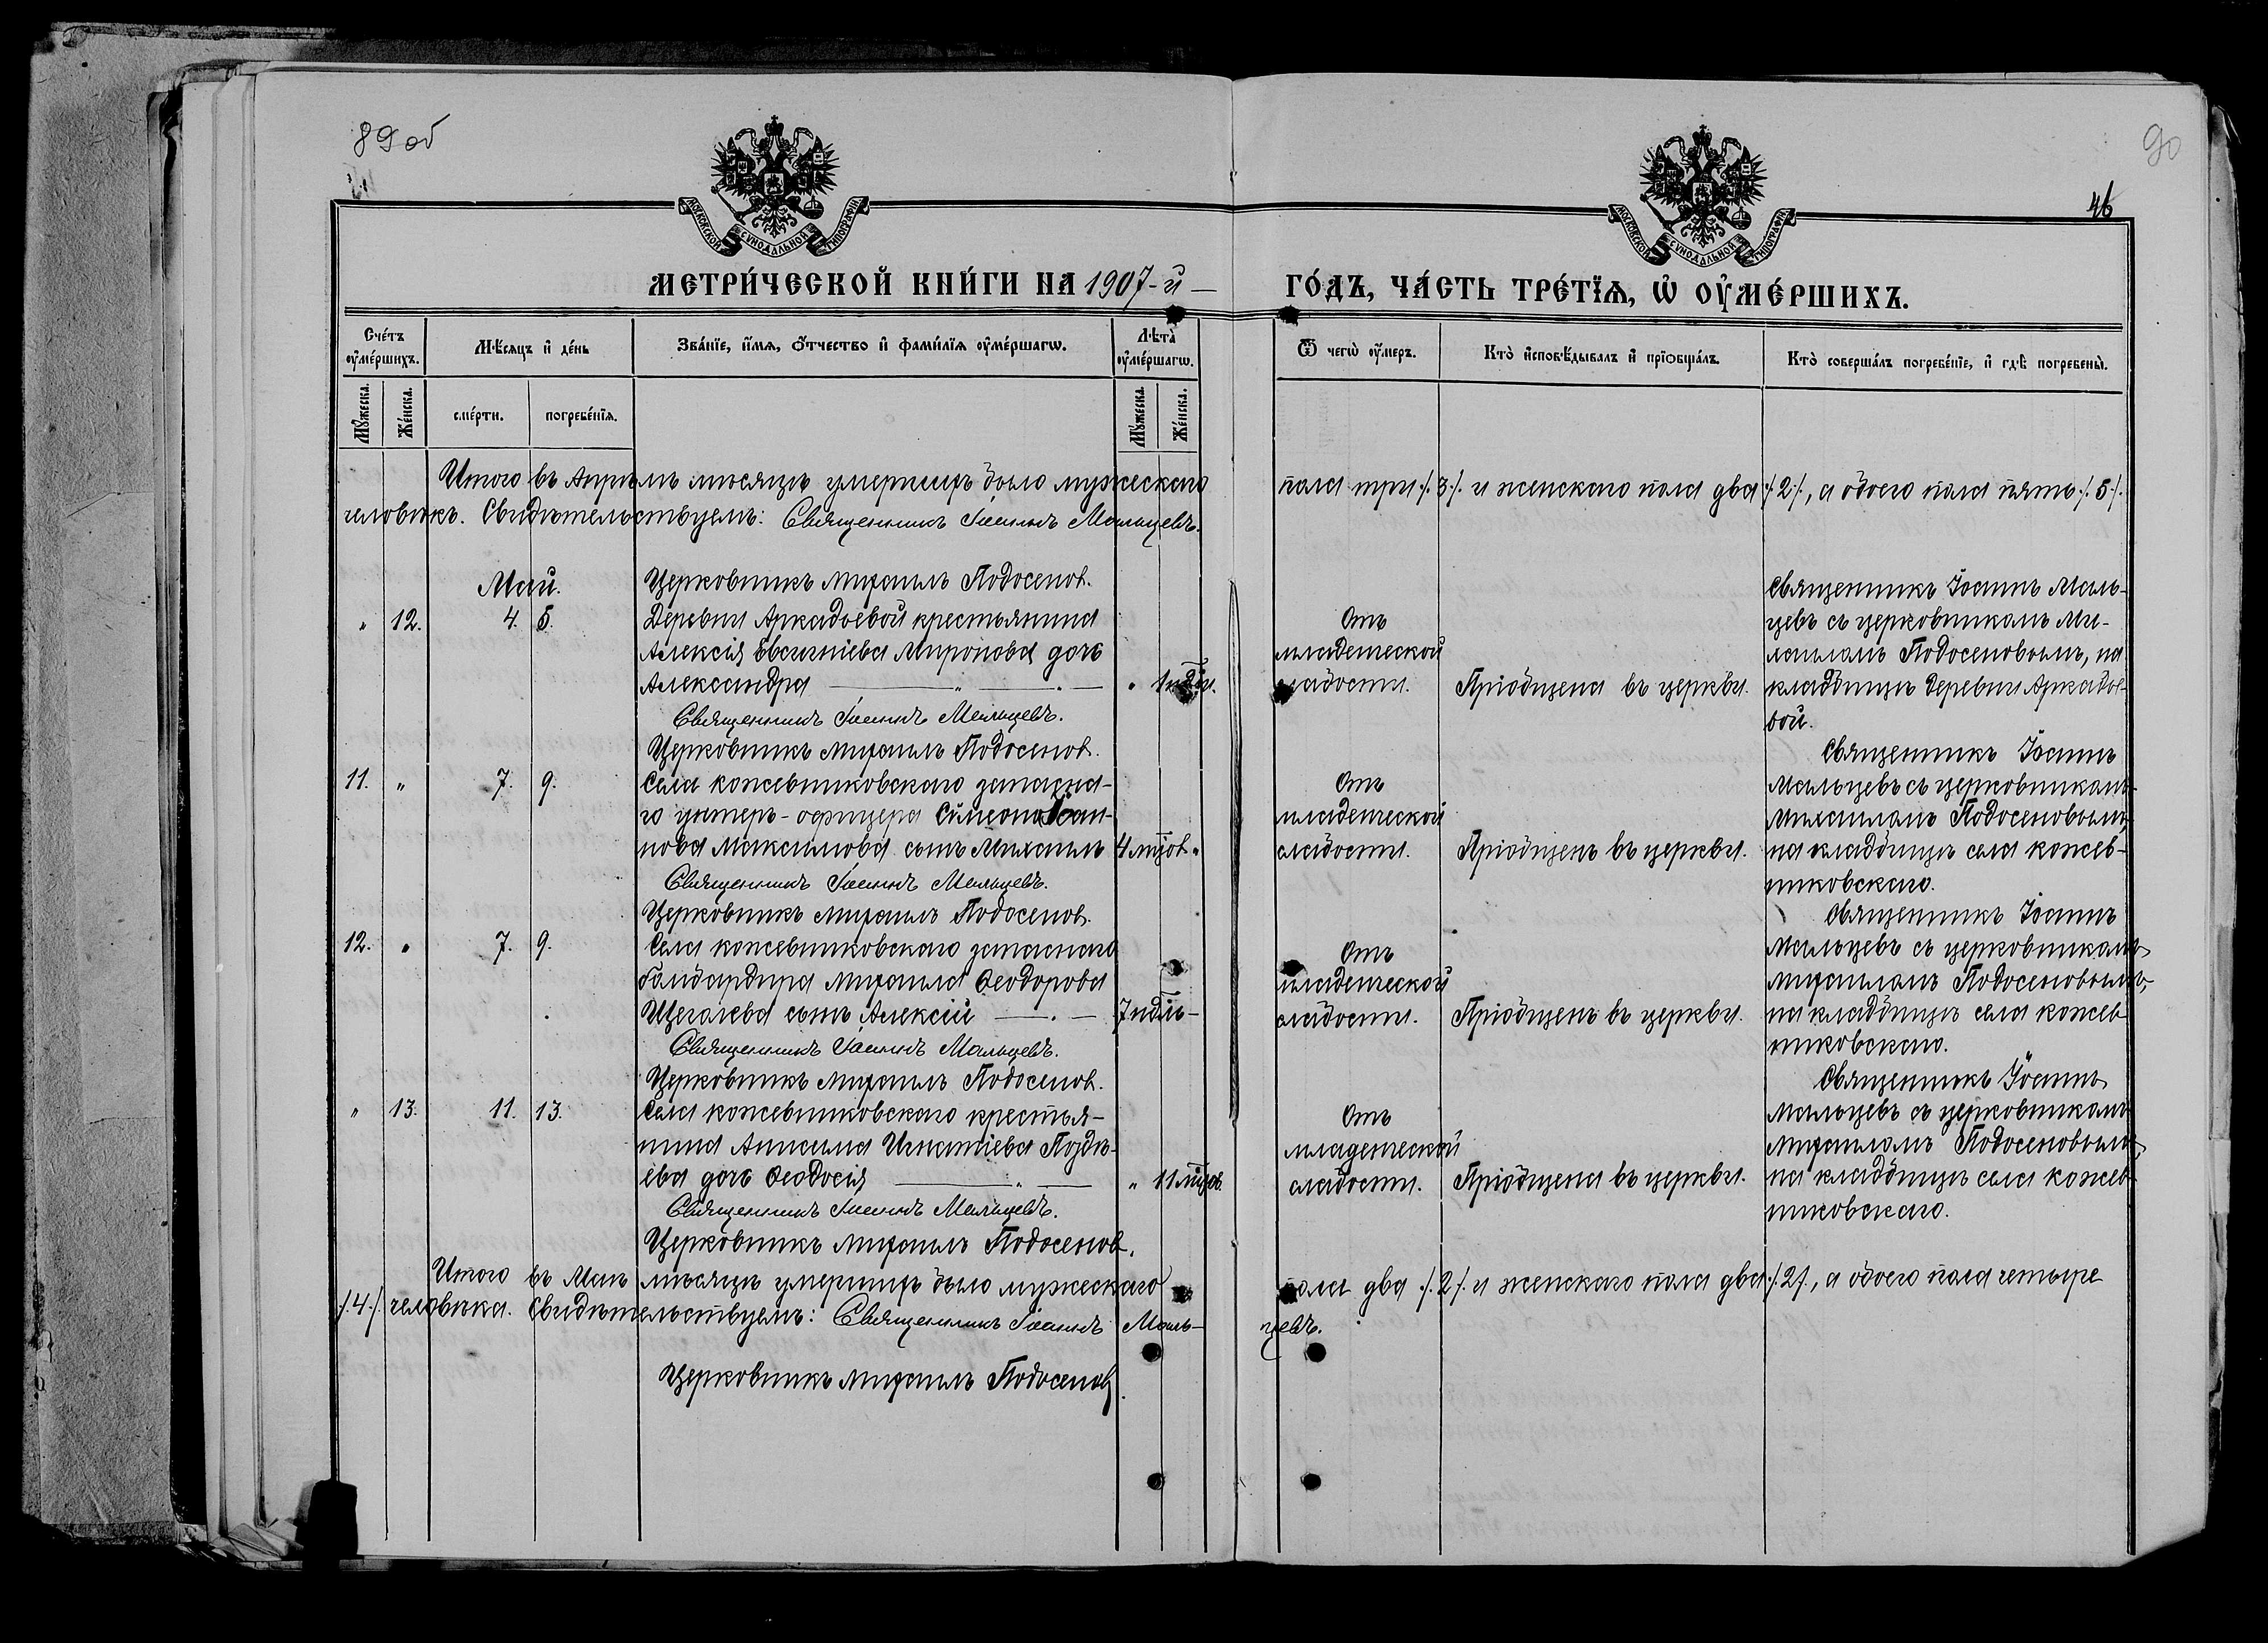 89об
90
46
МОСКОВСКОЙ СУНОДАЛЬНОЙ ТИПОГРАФІИ
МОСКОВСКОЙ СУНОДАЛЬНОЙ ТИПОГРАФІИ
МЕТРИ́ЧЕСКОЙ КНИ́ГИ НА 1907-й
ГО́ДЪ, ЧА́СТЬ ТРЕ́ТЇѦ, Ѡ҆ ОУ҆МЕ́РШИХЪ.
Сче́тъ оу҆ме́ршихъ.
Мѣ́сяцъ и҆ де́нь
Зва́нїе, и҆́мѧ, ѻ҆́тчество и҆ фами́лїѧ оу҆ме́ршагѡ.
Лѣ̀та оу҆ме́ршагѡ.
Ѿ чегѡ̀ оу҆́меръ.
Кто̀ и҆сповѣ́дывалъ и҆ прїѻбща́лъ.
Кто̀ соверша́лъ погребе́нїе, и҆ гдѣ̀ погребены̀.
Му́жеска.
Же́нска.
сме́рти.
погребе́нїѧ.
Му́жеска.
Же́нска.
Итого въ Апрѣлѣ мѣсяцѣ умершихъ было мужескаго
пола три /.3./ и женскаго пола два /.2./, а обоего пола пять /.5./.
человѣкъ. Свидѣтельствуемъ: Священникъ Іоаннъ Мальцевъ.
Май.
Церковникъ Михаилъ Подосенов.
„ 12. 4. 5.
Деревни Аркадьевой крестьянина
Алексія Евсигніева Миронова дочь
Александра „ 1 нѣди.
Отъ
младенческой
слабости.
Пріобщена въ церкви.
Священникъ Іоаннъ Маль-
цевъ съ церковникомъ Ми-
хаиломъ Подосеновымъ, на
кладбищѣ деревни Аркадье-
вой.
Священникъ Іоаннъ Мальцевъ.
Церковникъ Михаилъ Подосенов.
11. „ 7. 9.
Села Кожевниковскаго запасна-
го унтеръ-офицера Симеона Іоан-
нова Максимова сынъ Михаилъ 4 мцов „
Отъ
младенческой
слабости.
Пріобщенъ въ церкви.
Священникъ Іоаннъ
Мальцевъ съ церковникомъ
Михаиломъ Подосеновымъ,
на кладбищѣ села Кожев-
никовскаго.
Священникъ Іоаннъ Мальцевъ.
Церковникъ Михаилъ Подосенов.
12. „ 7. 9.
Села Кожевниковскаго запаснаго
бомбардира Михаила Ѳеодорова
Щеголева сынъ Алексій 7 ндль -
Отъ
младенческой
слабости.
Пріобщенъ въ церкви.
Священникъ Іоаннъ
Мальцевъ съ церковникомъ
Михаиломъ Подосеновымъ,
на кладбищѣ села Кожев-
никовскаго.
Священникъ Іоаннъ Мальцевъ.
Церковникъ Михаилъ Подосенов.
„ 13. 11. 13.
Села Кожевниковскаго крестья-
нина Анисима Игнатіева Поздѣ-
ева дочь Ѳеодосія „ 11 мцов.
Отъ
младенческой
слабости.
Пріобщена въ церкви.
Священникъ Іоаннъ
Мальцевъ съ церковникомъ
Михаиломъ Подосеновымъ,
на кладбищѣ села Кожев-
никовскаго.
Священникъ Іоаннъ Мальцевъ.
Церковникъ Михаилъ Подосенов.
Итого въ Маѣ мѣсяцѣ умершихъ было мужескаго
пола два /.2./ и женскаго пола два /.2/, а обоего пола четыре
/.4./ человѣка. Свидѣтельствуемъ: Священникъ Іоаннъ Маль-
цевъ.
Церковникъ Михаилъ Подосенов.